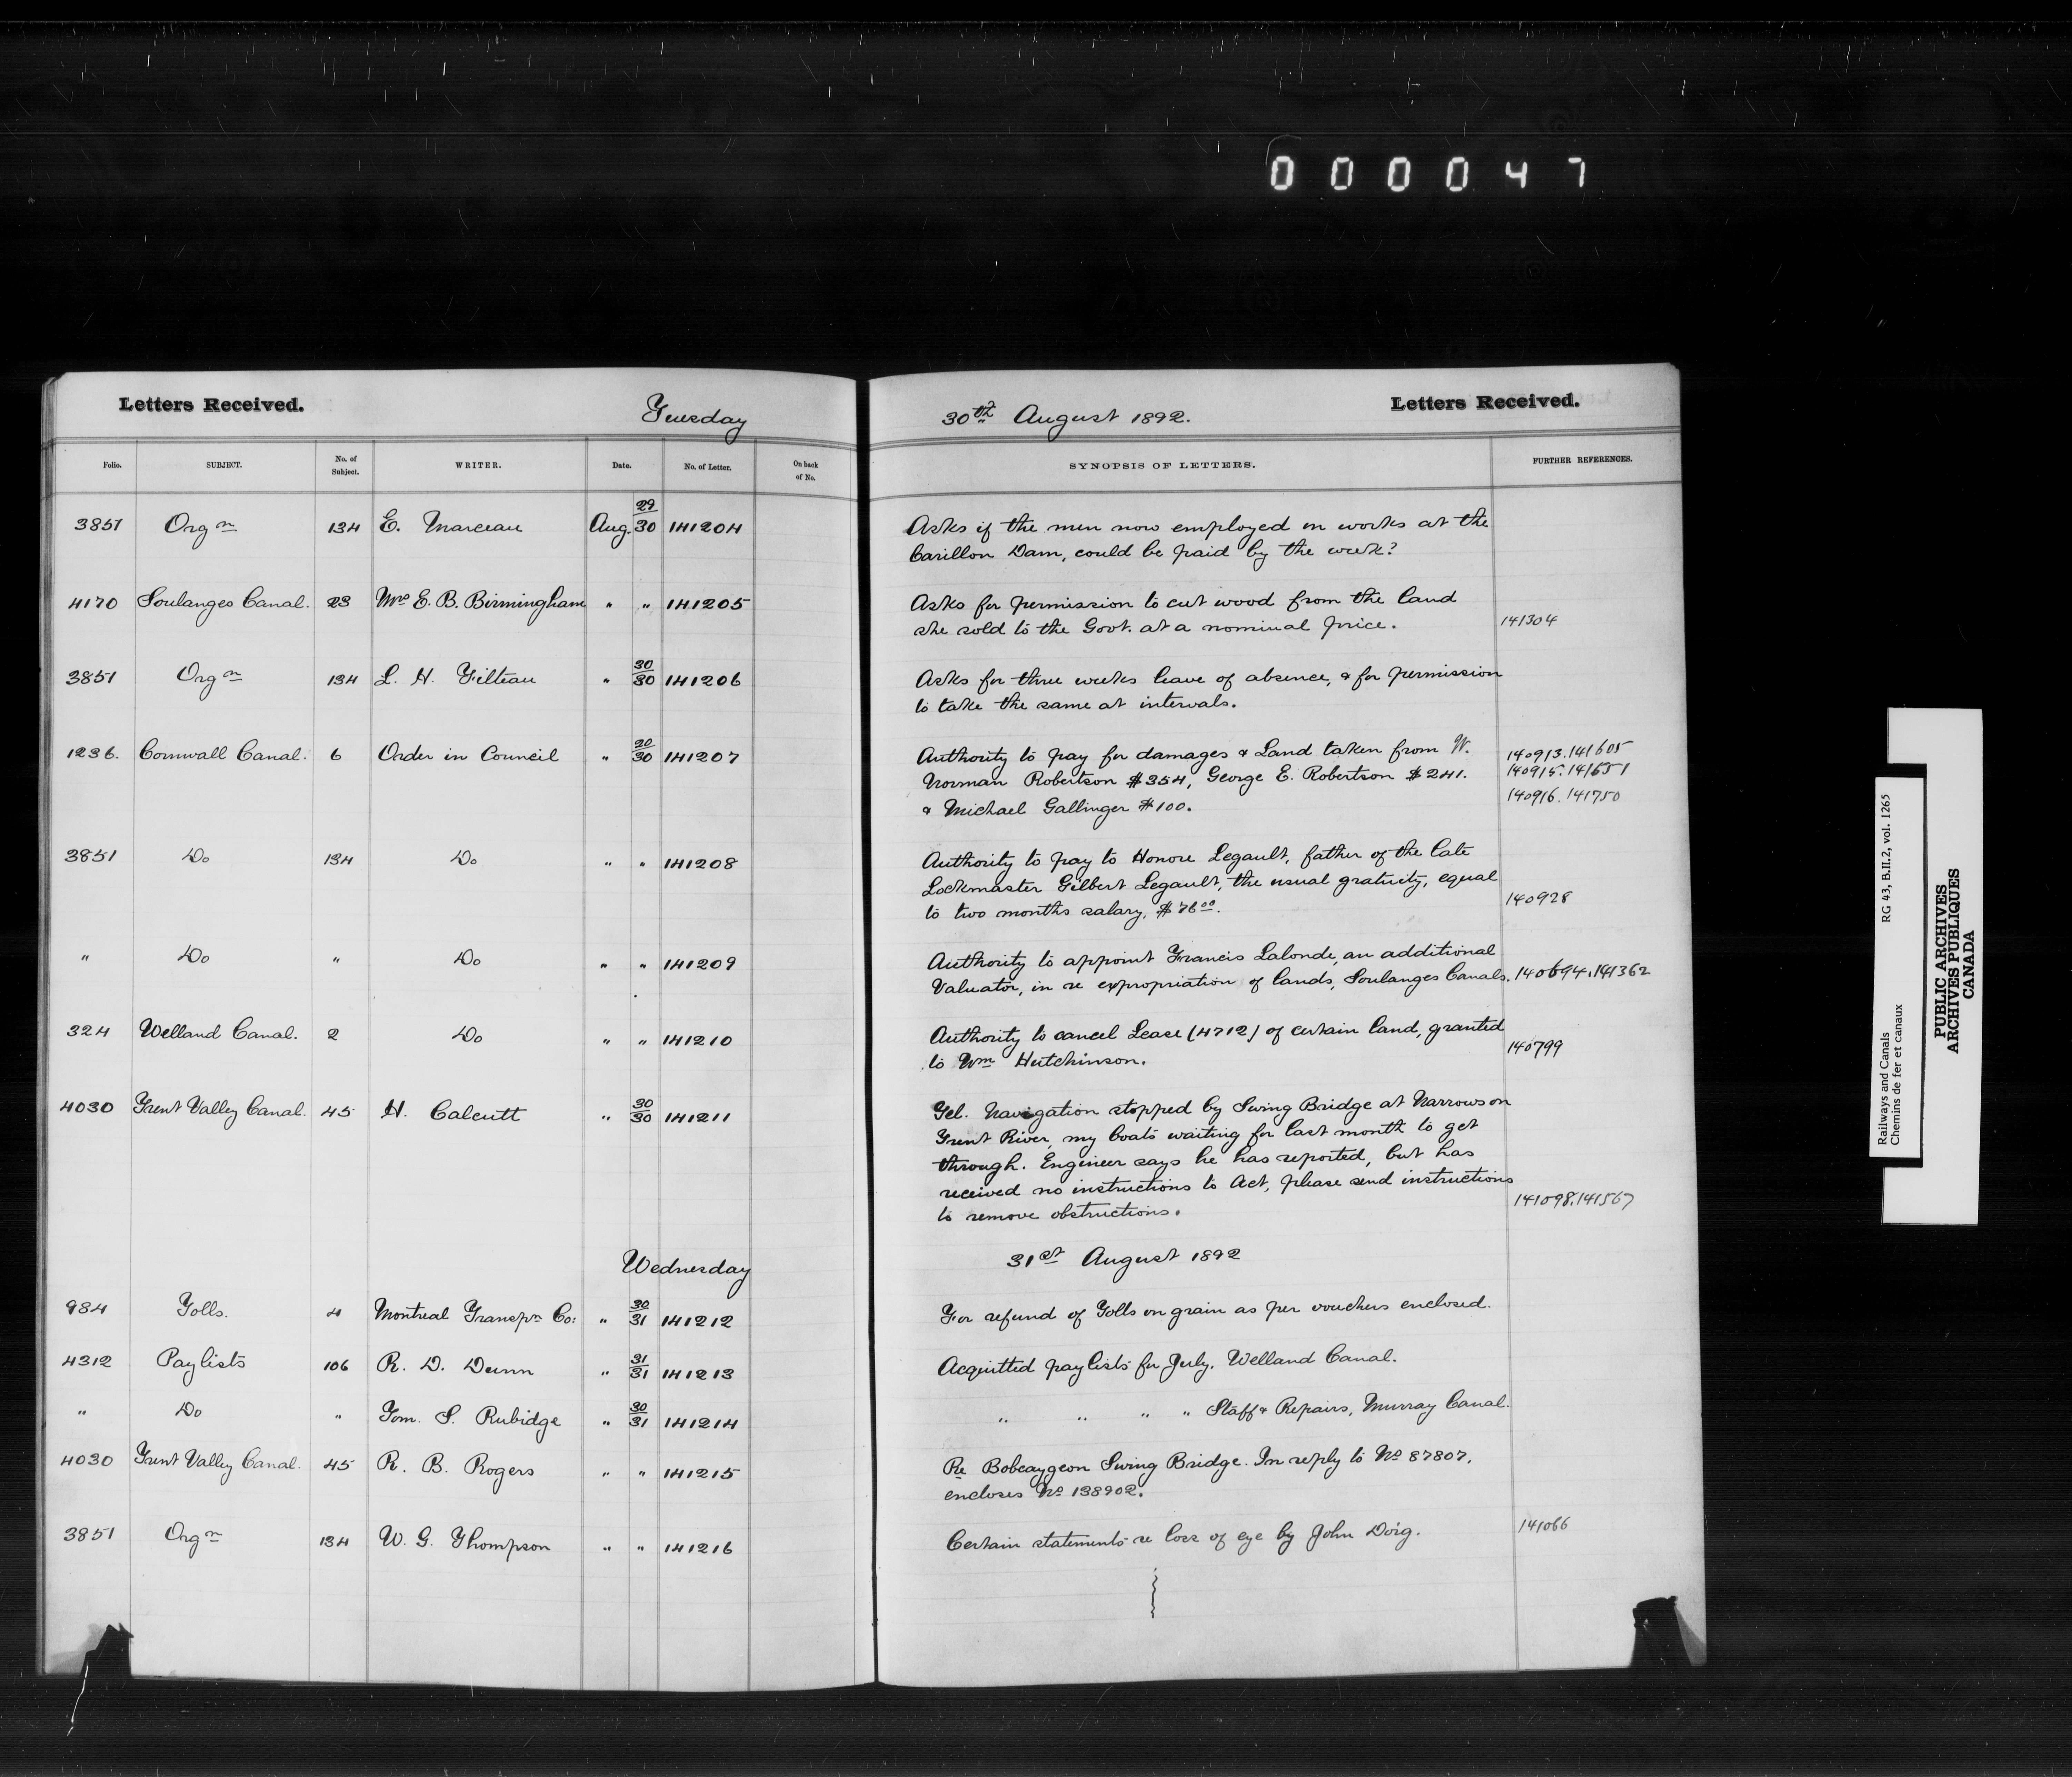 0 0 0 0 4 7
Letters Received. Tuesday 30th August 1892. Letters Received.
Folio. SUBJECT. No. of Subject. WRITER. Date. No. of Letter. On back of No. SYNOPSIS OF LETTERS. FURTHER REFERENCES.
3851 Orgn 134 E. Marceau Aug. 29/30 141204 Asks if the men now employed on works at the
Carillon Dam, could be paid by the week?
4170 Soulanges Canal. 23 Mrs E. B. Birmingham " " 141205 Asks for permission to cut wood from the land
she sold to the Govt. at a nominal price. 141304
3851 Orgn 134 L. H. Filteau " 30/30 141206 Asks for three weeks leave of absence, & for permission
to take the same at intervals.
1236. Cornwall Canal. 6 Order in Council " 20/30 141207 Authority to pay for damages & Land taken from W. 140913.141605
Norman Robertson $354, George E. Robertson $241. 140915.141651
& Michael Gallinger $100. 140916.141750
3851 Do 134 Do " " 141208 Authority to pay to Honore Legault, father of the late
Lockmaster Gilbert Legault, the usual gratuity, equal
to two months salary, $76.00. 140928
" Do " Do " " 141209 Authority to appoint Francis Lalonde, an additional
Valuator, in re expropriation of lands, Soulanges Canals. 140694.141362
324 Welland Canal. 2 Do " " 141210 Authority to cancel Lease (4712) of certain land, granted
to Wm Hutchinson. 140799
4030 Trent Valley Canal. 45 H. Calcutt " 30/30 141211 Tel. Navigation stopped by Swing Bridge at Narrows on
Trent River, my boats waiting for last month to get
through. Engineer says he has reported, but has
received no instructions to Act, please send instructions
to remove obstructions. 141098.141567
Wednesday 31st August 1892
984 Tolls. 4 Montreal Transpn Co: " 30/31 141212 For refund of Tolls on grain as per vouchers enclosed.
4312 Paylists 106 R. D. Dunn " 31/31 141213 Acquitted paylists for July. Welland Canal.
" Do " Tom. S. Rubidge " 30/31 141214 " " " " Staff & Repairs, Murray Canal.
4030 Trent Valley Canal. 45 R. B. Rogers " " 141215 Re Bobcaygeon Swing Bridge. In reply to No 87807,
encloses No 138902.
3851 Orgn 134 W. G. Thompson " " 141216 Certain statements re loss of eye by John Doig. 141066
Railways and Canals RG 43, B.II.2, vol. 1265
Chemins de fer et canaux
PUBLIC ARCHIVES
ARCHIVES PUBLIQUES
CANADA